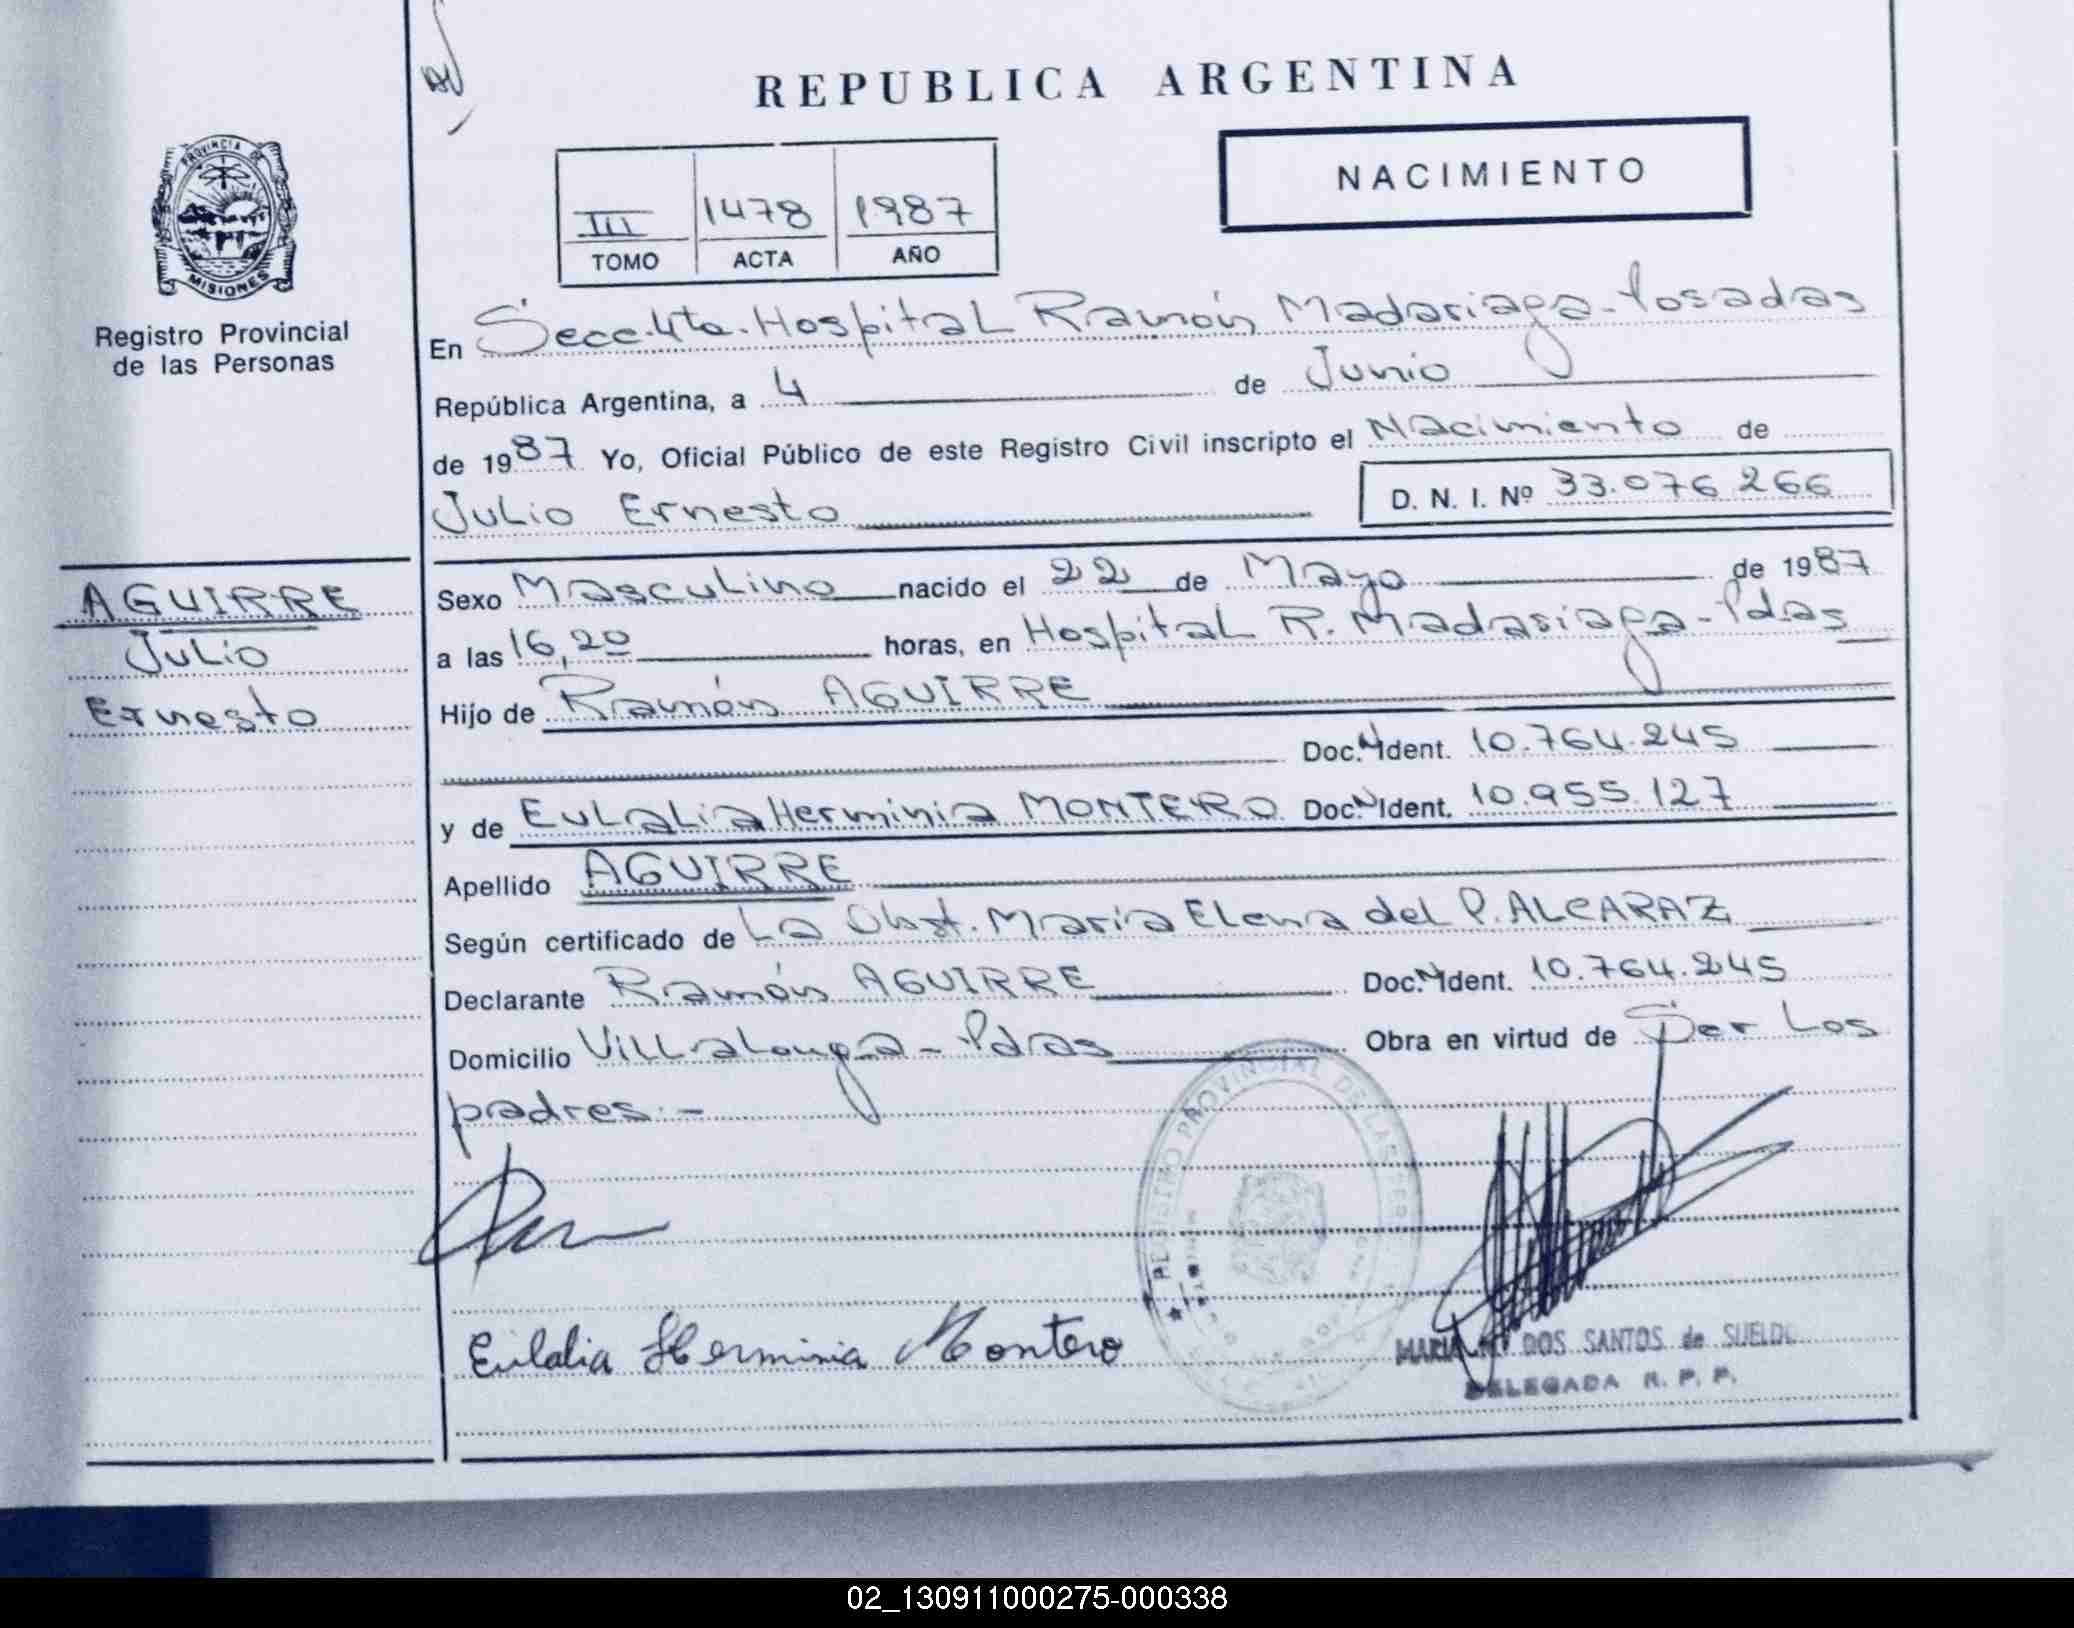 REPUBLICA ARGENTINA
NACIMIENTO
III 1478 1987
TOMO ACTA AÑO
PROVINCIA DE
MISIONES
Registro Provincial
de las Personas
En Secc. 4ta. Hospital Ramón Madariaga - Posadas
República Argentina, a 4 de Junio
de 1987 Yo, Oficial Público de este Registro Civil inscripto el Nacimiento de
Julio Ernesto
D. N. I. Nº 33.076.266
AGUIRRE
Julio
Ernesto
Sexo Masculino nacido el 22 de Mayo de 1987
a las 16,20 horas, en Hospital R. Madariaga - Pdas
Hijo de Ramón AGUIRRE
Doc. N Ident. 10.764.245
y de Eulalia Herminia MONTERO Doc. N Ident. 10.955.127
Apellido AGUIRRE
Según certificado de La Obst. María Elena del P. ALCARAZ
Declarante Ramón AGUIRRE Doc. N Ident. 10.764.245
Domicilio Villalonga - Pdas Obra en virtud de Ser Los
padres. -
REGISTRO PROVINCIAL DE LAS PER
Eulalia Herminia Montero
MARIA DOS SANTOS de SUELDO
DELEGADA R. P. P.
02_130911000275-000338